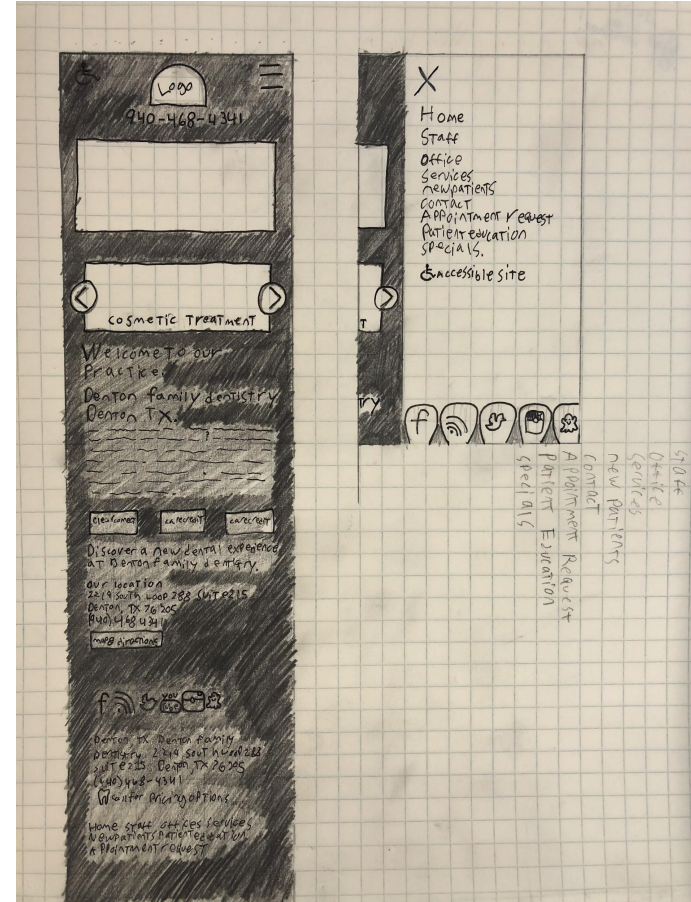 Logo
940-468-4341
COSMETIC TREATMENT
Welcome to our
Practice.
Denton family dentistry
Denton TX.
carecredit
carecredit
Discover a new dental experience
at Denton family dentistry.
our location
2219 south Loop 288 suite 215
Denton, TX 76205
(940) 468 4341
map & directions
f
YOU
Denton TX Denton family
Dentistry 2219 south Loop 288
suite 215 Denton, TX 76205
(940) 468-4341
call for Pricing options
Home staff offices services
Newpatients Patient education
Appointment request
X
Home
Staff
Office
Services
newpatients
contact
Appointment request
Patient education
specials.
accessible site
T
ry
f
Staff
Office
Services
new patients
contact
Appointment Request
patient Education
specials